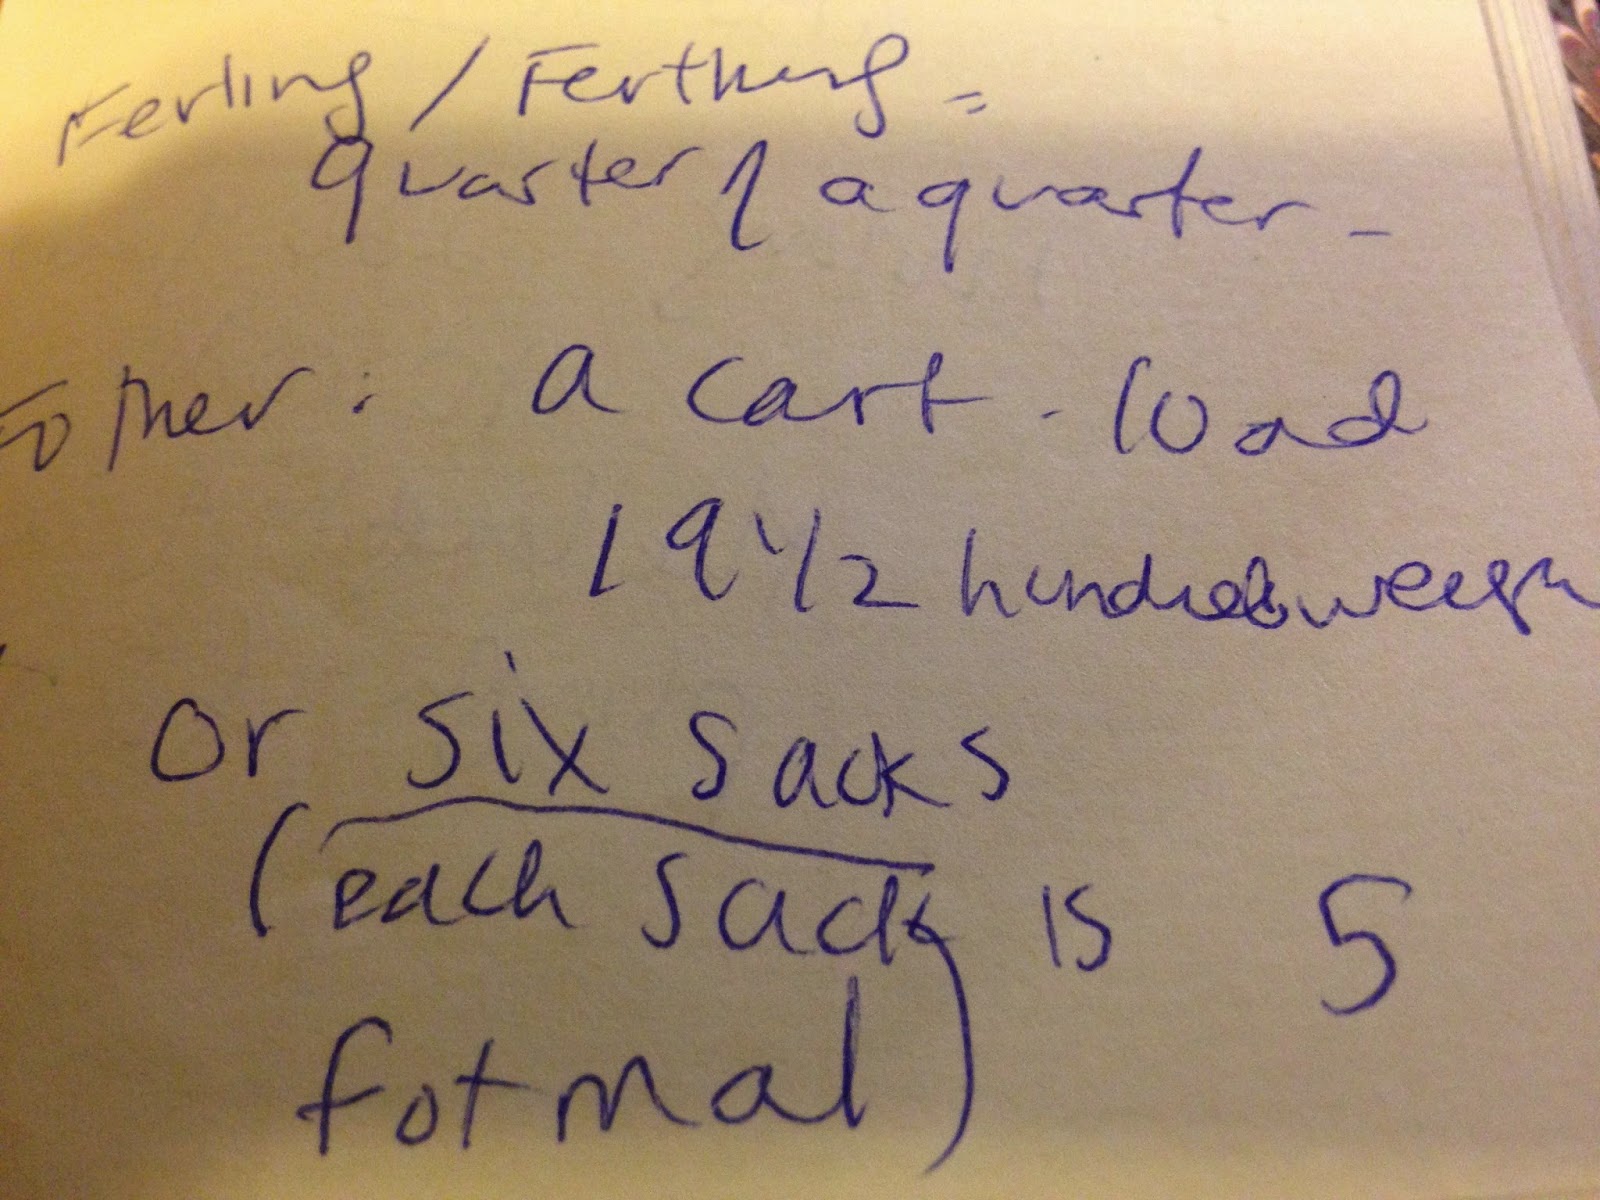 Ferling / Ferthing =
quarter of a quarter -
Fother: a cart-load
19 1/2 hundredweigh
or six sacks
(each sack is 5
fotmal)